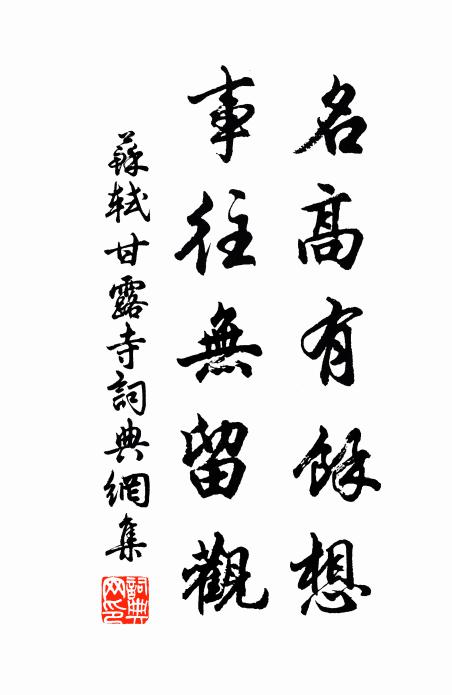 名高有餘想
事往無留觀
蘇軾甘露寺詞典網集
詞典网印